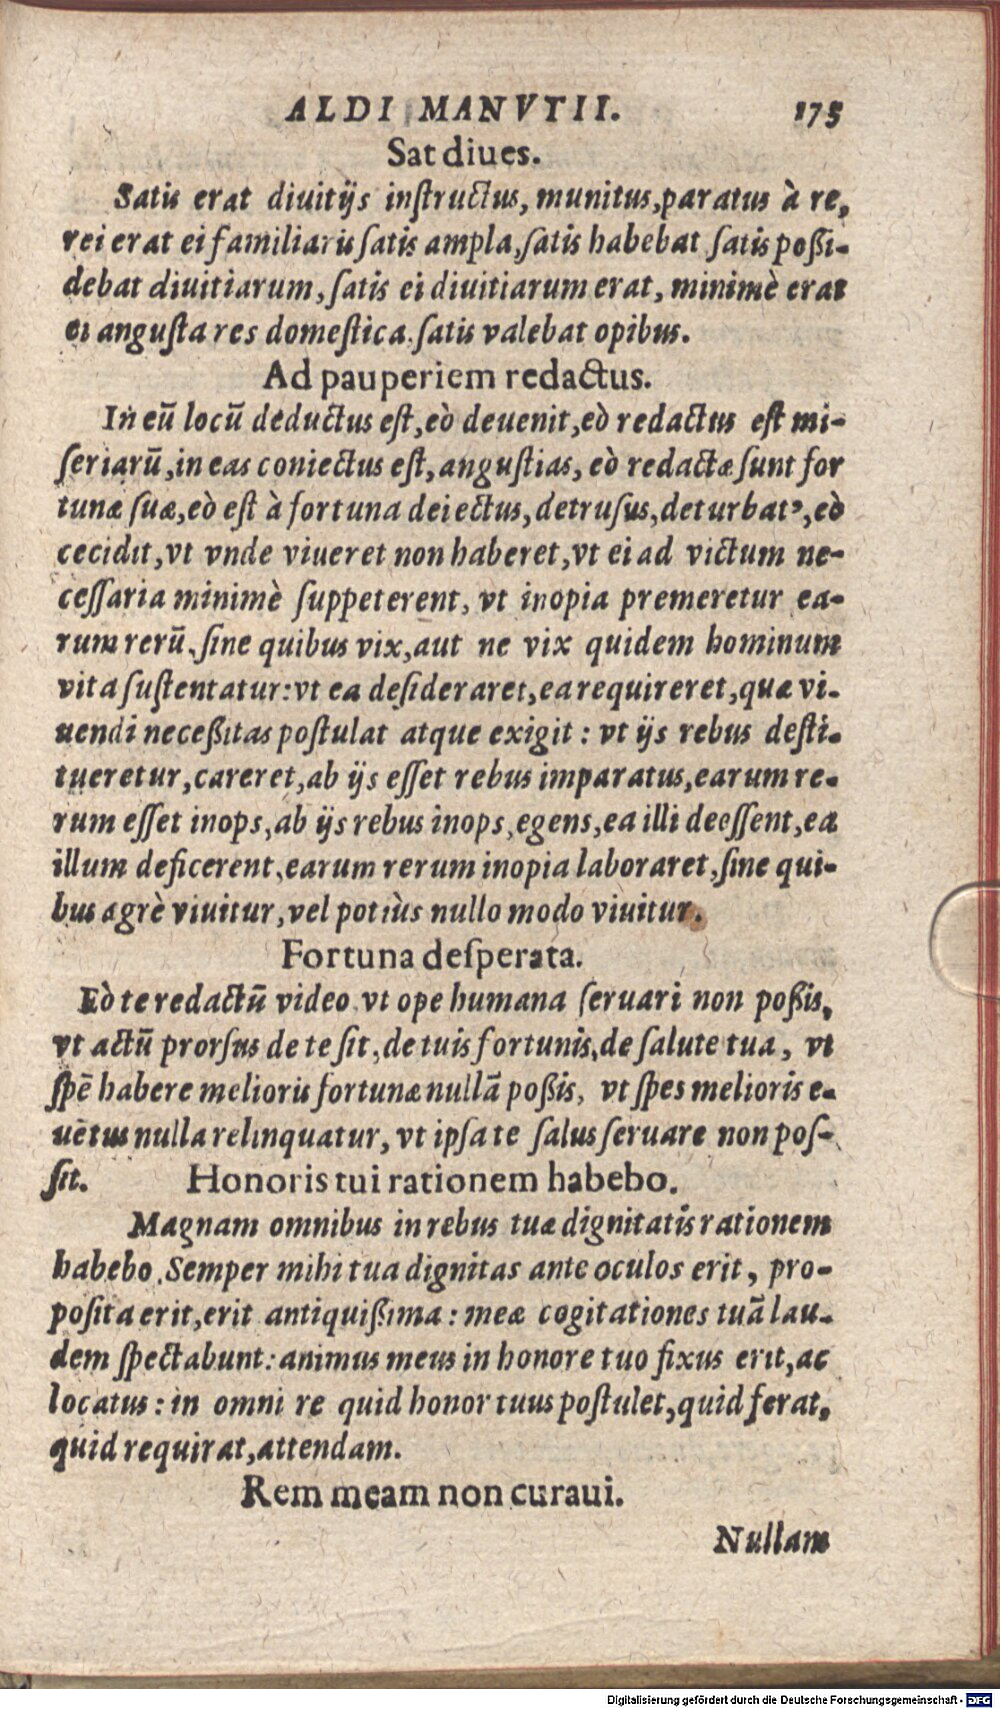 ALDI MANVTII. 175
Sat diues.
Satis erat diuitijs instructus, munitus, paratus à re,
rei erat ei familiaris satis ampla, satis habebat satis poßi-
debat diuitiarum, satis ei diuitiarum erat, minimè erat
ei angusta res domestica. satis valebat opibus.
Ad pauperiem redactus.
In eū locū deductus est, eò deuenit, eò redactus est mi-
seriarū, in eas coniectus est, angustias, eò redactæ sunt for
tunæ suæ, eò est à fortuna deiectus, detrusus, deturbatꝰ, eò
cecidit, vt vnde viueret non haberet, vt ei ad victum ne-
cessaria minimè suppeterent, vt inopia premeretur ea-
rum rerū, sine quibus vix, aut ne vix quidem hominum
vita sustentatur: vt ea desideraret, ea requireret, quæ vi-
uendi neceßitas postulat atque exigit: vt ijs rebus desti-
tueretur, careret, ab ijs esset rebus imparatus, earum re-
rum esset inops, ab ijs rebus inops, egens, ea illi deessent, ea
illum deficerent, earum rerum inopia laboraret, sine qui-
bus agrè viuitur, vel potiùs nullo modo viuitur.
Fortuna desperata.
Eò te redactū video vt ope humana seruari non poßis,
vt actū prorsus de te sit, de tuis fortunis, de salute tua, vt
spē habere melioris fortunæ nullā poßis, vt spes melioris e-
uētus nulla relinquatur, vt ipsa te salus seruare non pos-
sit. Honoris tui rationem habebo.
Magnam omnibus in rebus tuæ dignitatis rationem
habebo. Semper mihi tua dignitas ante oculos erit, pro-
posita erit, erit antiquißima: meæ cogitationes tuā lau-
dem spectabunt: animus meus in honore tuo fixus erit, ac
locatus: in omni re quid honor tuus postulet, quid ferat,
quid requirat, attendam.
Rem meam non curaui.
Nullam
Digitalisierung gefördert durch die Deutsche Forschungsgemeinschaft - DFG